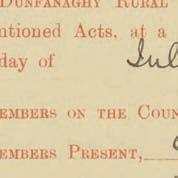 Dunfanaghy Rural
ntioned Acts, at a
day of Jul
embers on the Coun
embers Present,